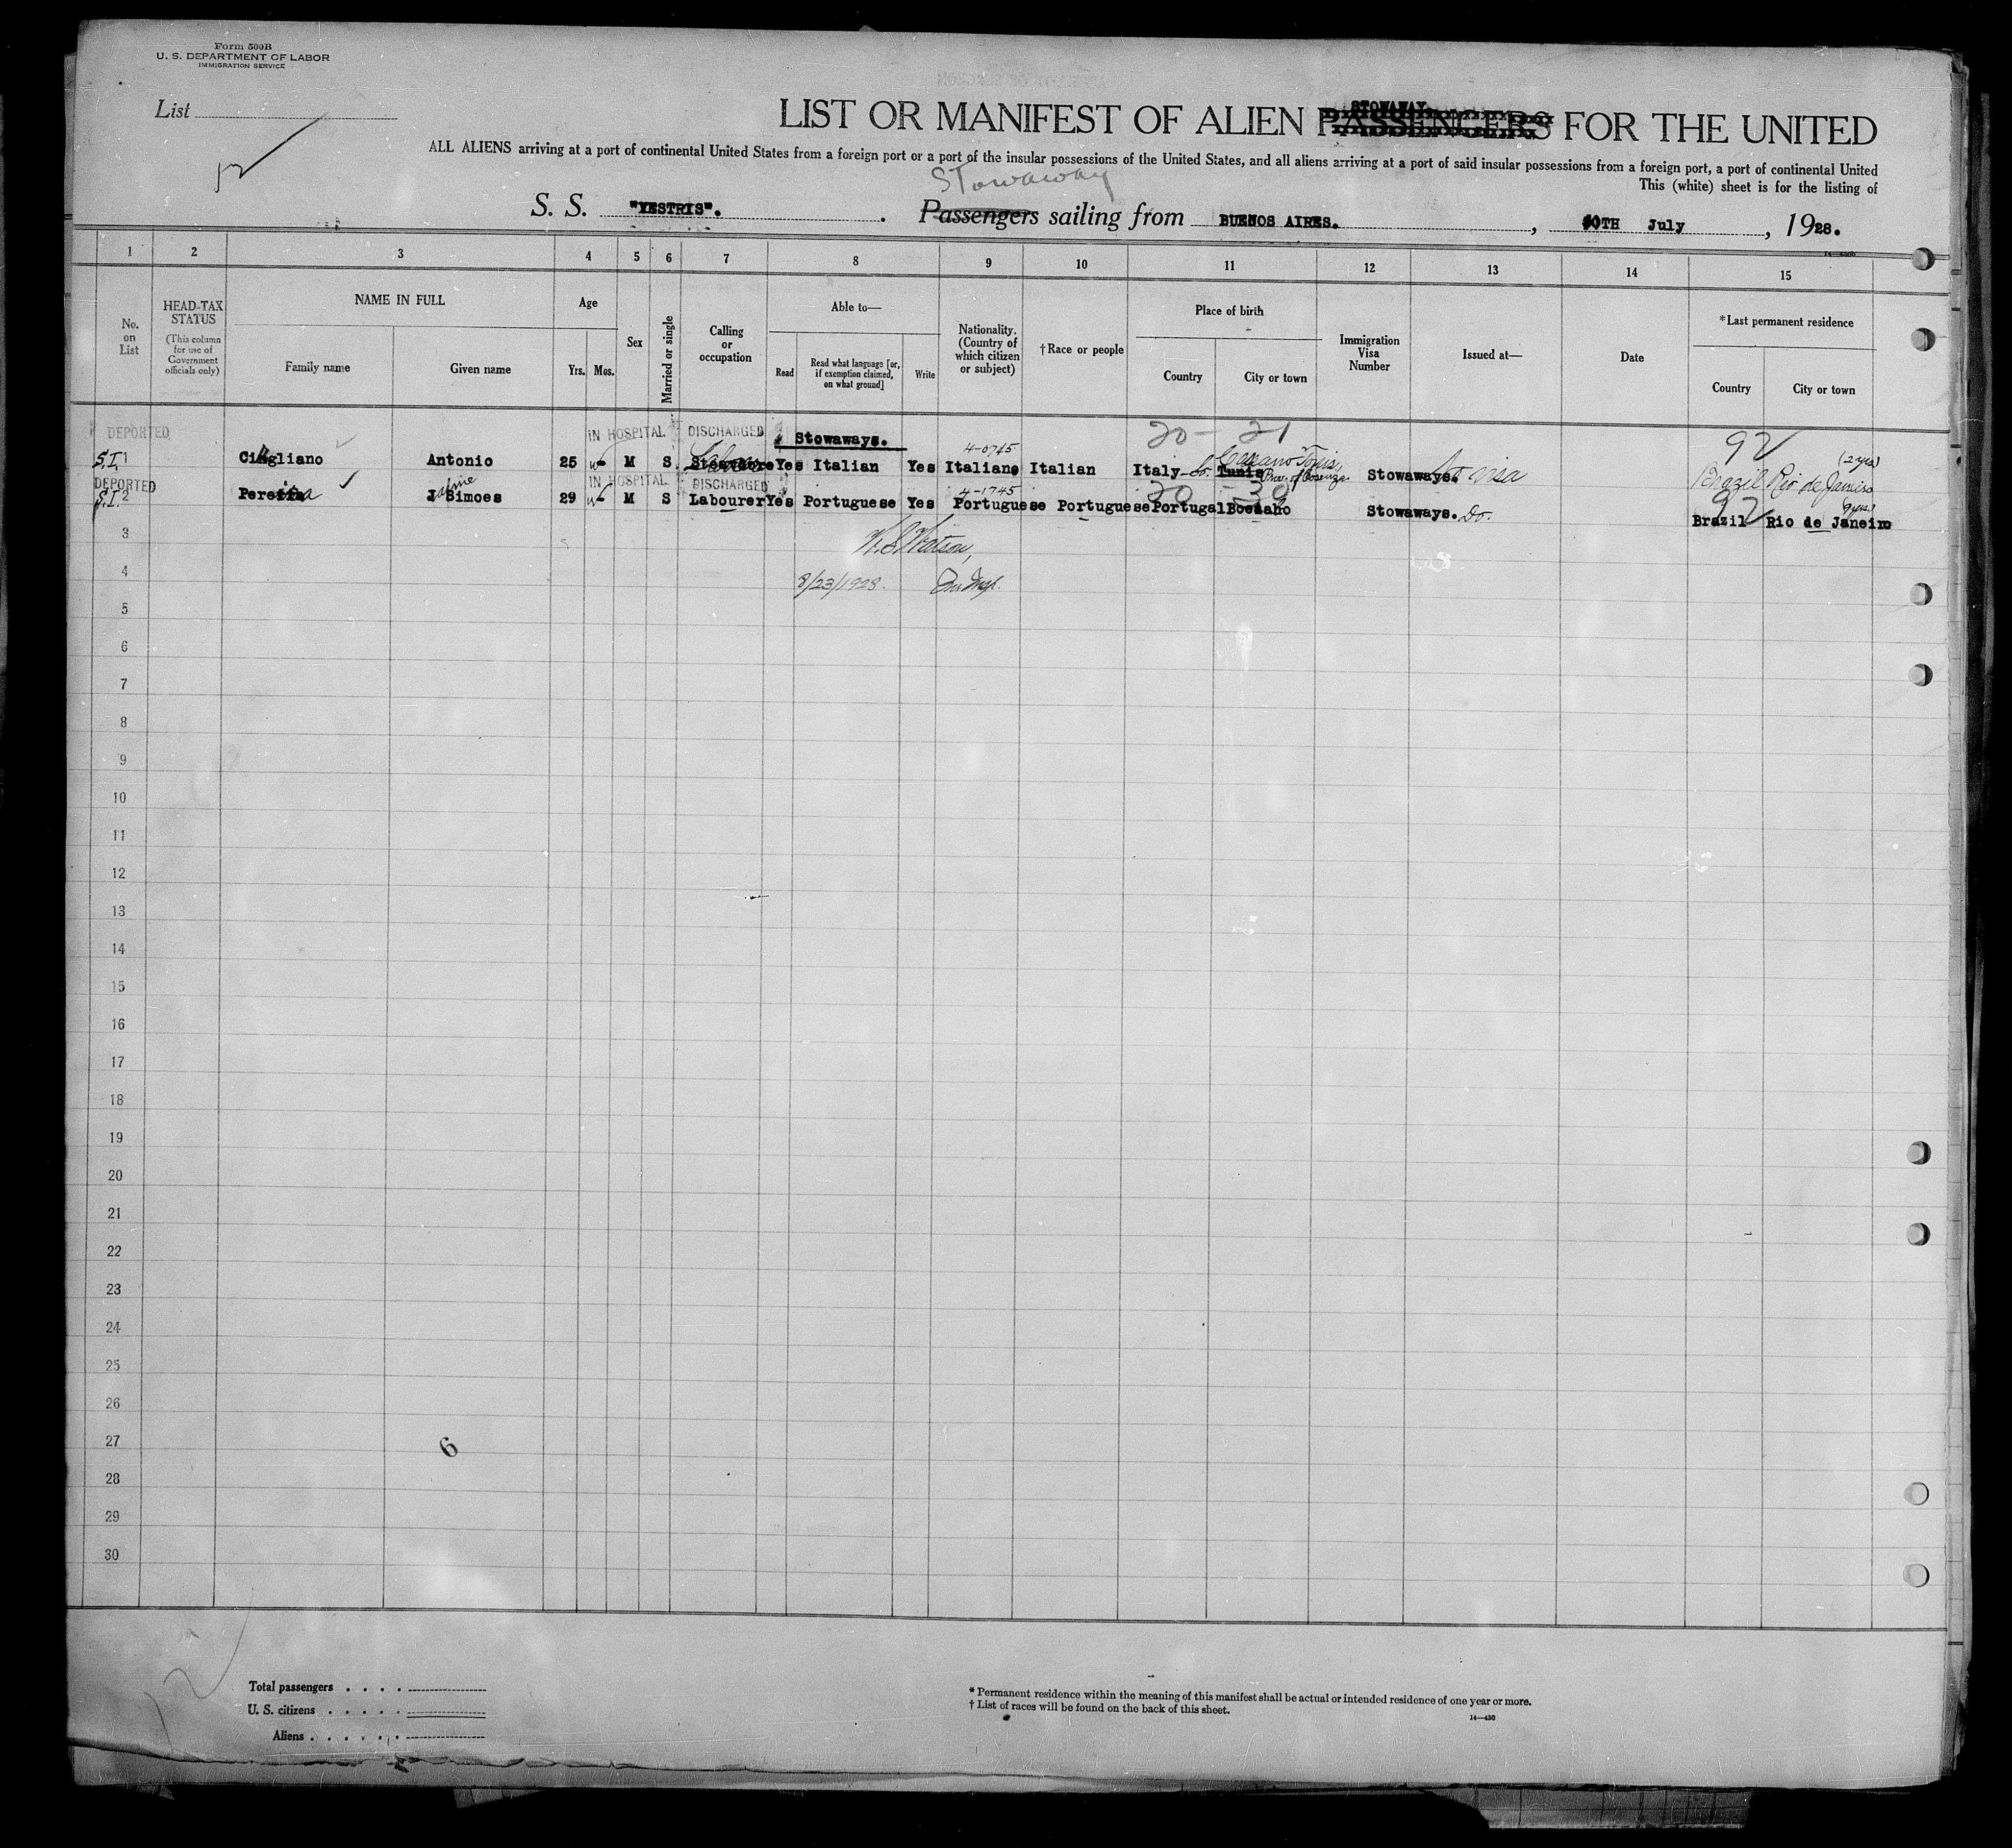 Form 500B
U. S. DEPARTMENT OF LABOR
IMMIGRATION SERVICE
List
STOWAWAY
LIST OR MANIFEST OF ALIEN PASSENGERS FOR THE UNITED
ALL ALIENS arriving at a port of continental United States from a foreign port or a port of the insular possessions of the United States, and all aliens arriving at a port of said insular possessions from a foreign port, a port of continental United
This (white) sheet is for the listing of
Stowaway
S. S. "VESTRIS". Passengers sailing from BUENOS AIRES. , July , 1928.
1 2 3 4 5 6 7 8 9 10 11 12 13 14 15
No. on List
HEAD-TAX STATUS
(This column for use of Government officials only)
NAME IN FULL
Family name Given name
Age
Yrs. Mos.
Sex
Married or single
Calling or occupation
Able to—
Read
Read what language [or, if exemption claimed, on what ground]
Write
Nationality. (Country of which citizen or subject)
†Race or people
Place of birth
Country City or town
Immigration Visa Number
Issued at—
Date
*Last permanent residence
Country City or town
DEPORTED IN HOSPITAL DISCHARGED Stowaways. 20 - 21 92
4-0745 (2 yrs)
S.I. 1 Antonio 25 M S Yes Italian Yes Italian Italian Italy Tunis Prov. of Cosenza Stowaways. No visa Brazil Rio de Janeiro
DEPORTED IN HOSPITAL DISCHARGED 4-1745 20 - 30 92
S.I. 2 Pereira 29 M S Labourer Yes Portuguese Yes Portuguese Portuguese Portugal Stowaways. Do. Brazil Rio de Janeiro
3
W. S. Watson,
4 8/23/1928.
5
6
7
8
9
10
11
12
13
14
15
16
17
18
19
20
21
22
23
24
25
26
27
6
28
29
30
Total passengers
U. S. citizens
Aliens
* Permanent residence within the meaning of this manifest shall be actual or intended residence of one year or more.
† List of races will be found on the back of this sheet.
14—430